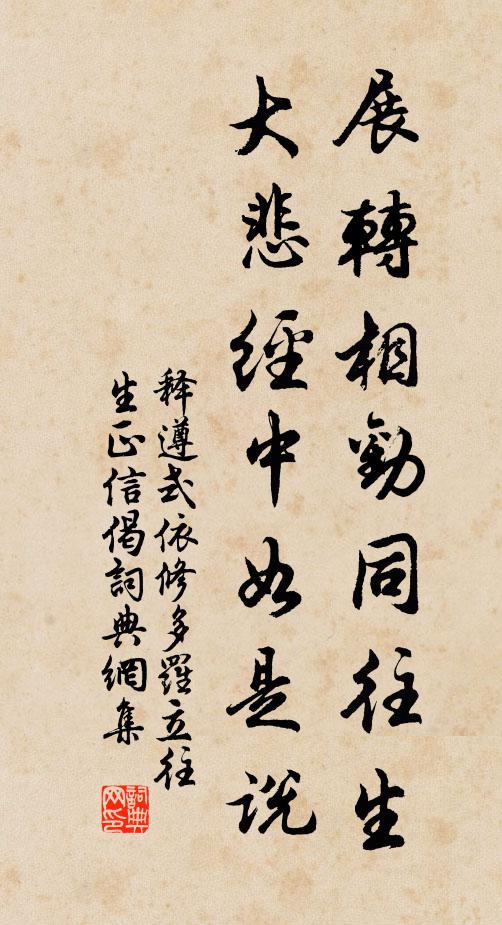 展轉相勸同往生
大悲經中如是説
釋遵式依修多羅立往
生正信偈詞典網集
詞典网印